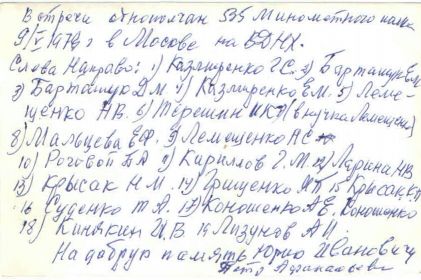 Встречи однополчан 535 Минометного полка
9/V 1979 г в Москве на ВДНХ.
Слева Направо: 1) Казмиренко Г.С. 2) Барташук Е.М.
3) Д.М 4) Казмиренко Е.М. 5) Леме-
щенко А.В. 6) Терешин И.К. 7) (внучка Лемещенко)
8) Мальцева Е.Ф. 9) Лемещенко А С
10) Роговой П А 11) Кириллов Г. М 12) Ларина Н В
13) Крысак Н.М. 14) Грищенко М П 15 Крысак К П
16 Суденко Т А. 17) Коношенко А Е. Коношенко
18) Кинякин И. В 19 Лизунов А И.
На добрую память Юрию Ивановичу
Петр Афанасьевич